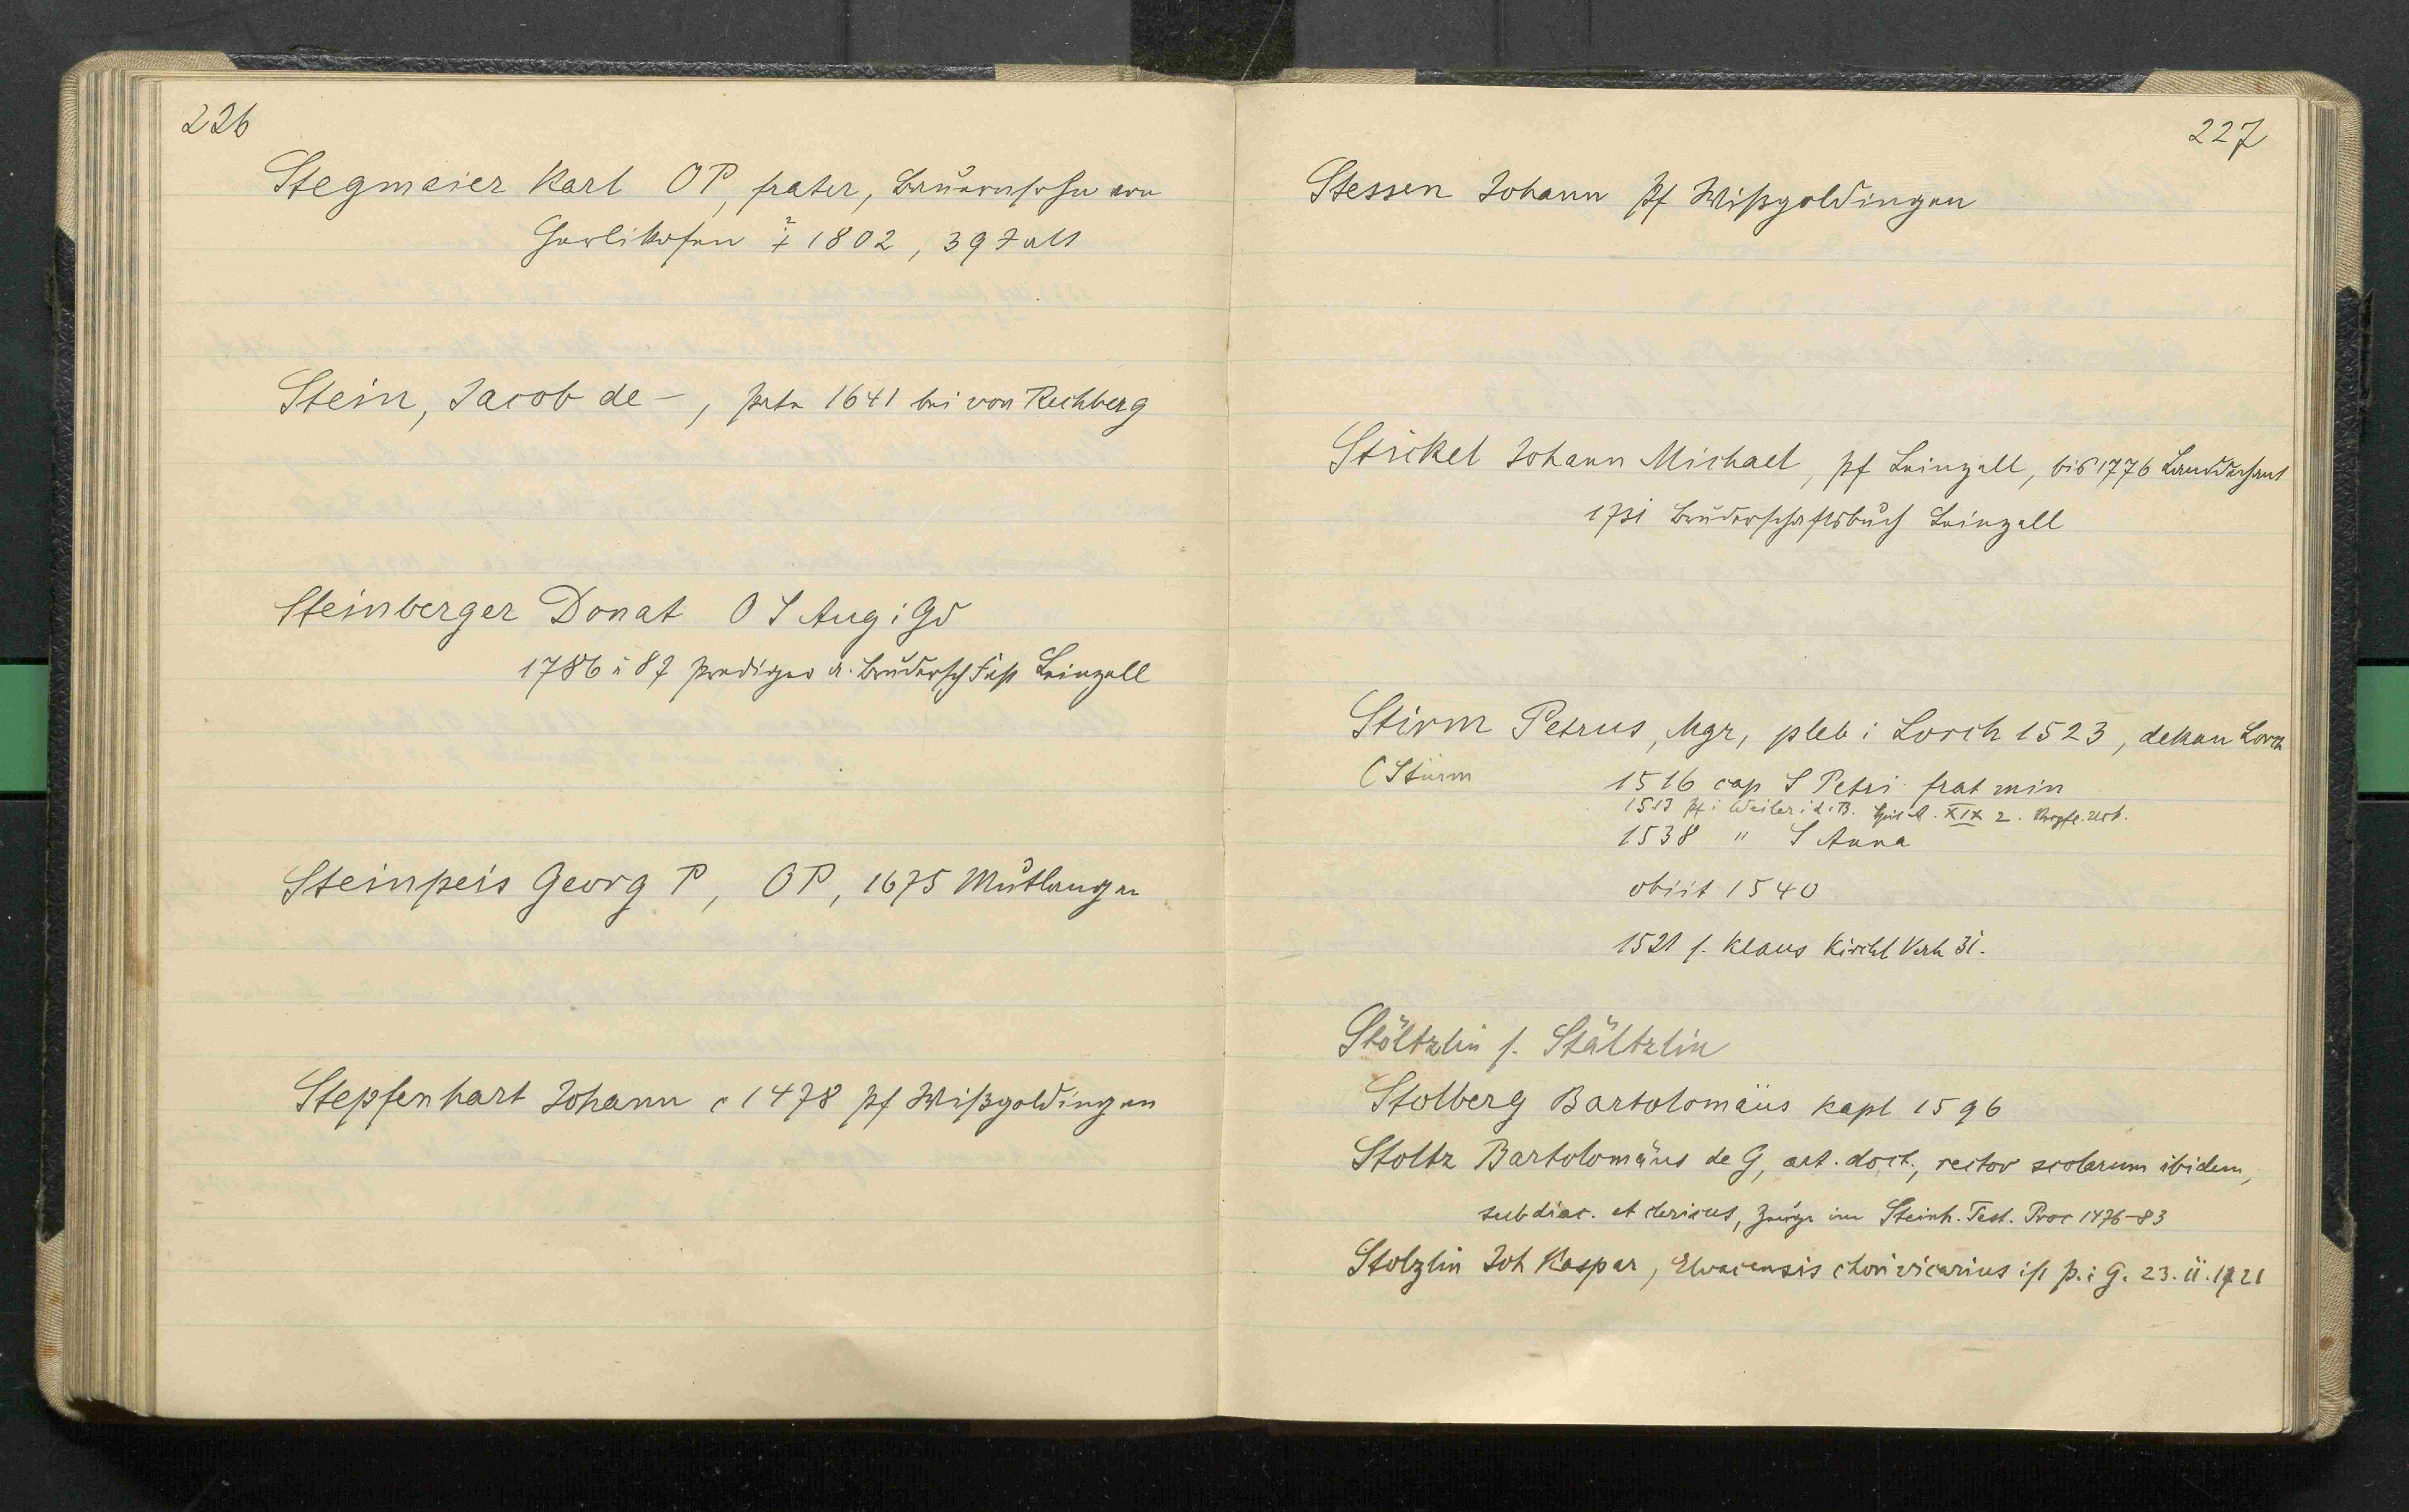 226
Stegmaier Karl OP, frater, Bauernsohn von
Herlikofen † 1802, 39 J alt
Stein, Jacob de -, pater 1641 bei von Rechberg
Steinberger Donat O S Aug i Gd
1786 u 87 Prediger a. Brudersch Fest Leinzell
Steinpeis Georg P, OP, 1675 Mutlangen
Stepfenhart Johann c 1478 Pf Wißgoldingen
227
Stessen Johann Pf Wißgoldingen
Stickel Johann Michael, Pf Leinzell, bis 1776 Landdechant
1731 Bruderschaftsbuch Leinzell
Stirm Petrus, Mgr, pleb i Lorch 1523, dekan Lorch
(Sturm
1516 cap S Petri frat min
1513 Pf i Weiler i. d. B. XIX 2. Urb.
1538 " S Anna
obiit 1540
1521 s. Klaus Kirchl Verh 31.
Stöltzlin s. Stältzlin
Stolberg Bartolomäus Kapl 1596
Stoltz Bartolomäus de G, art. doct., rector scolarum ibidem,
subdiac. et clericus, Zeuge im Steinh. Test. Proc 1476-83
Stolzlin Joh Kaspar, Elvacensis chorivicarius ist P. i G. 23. II. 1721